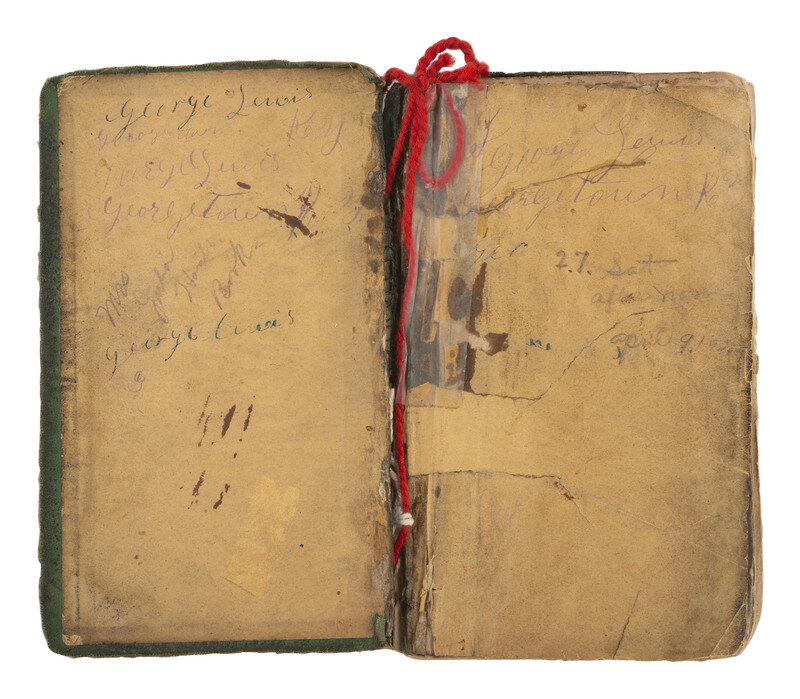 George Lewis
Georgetown Ky
George Lewis
Georgetown
Mrs
Book
George Lewis
G
George Lewis
Georgetown Ky
27. Satt
afternoon
april 9